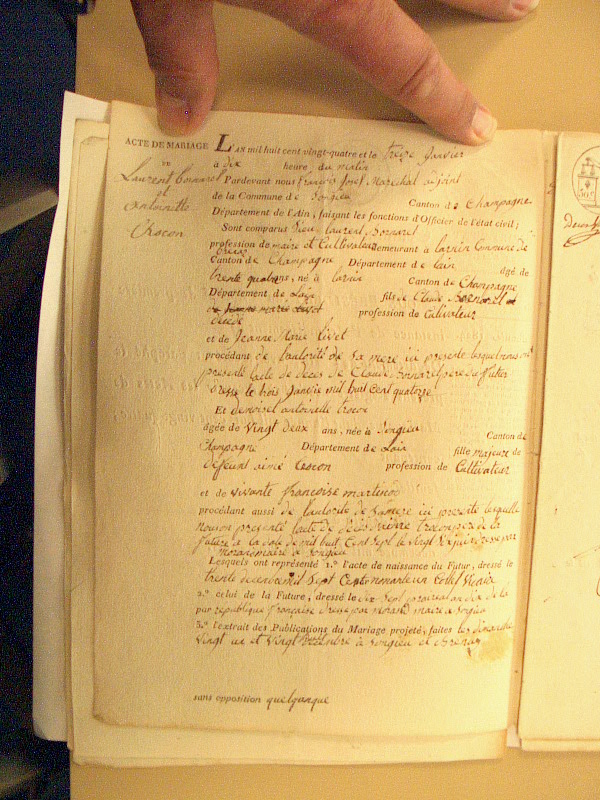 ACTE DE MARIAGE
L'AN mil huit cent vingt-quatre et le treize Janvier
à dix heure du matin
Laurent Bonnarel
Pardevant nous françois Josef Marechal adjoint
et
de la Commune de Songieu Canton de Champagne
antoinette
Département de l'Ain, faisant les fonctions d'Officier de l'état civil;
Crocon
Sont comparus Sieur Laurent Bonnarel
profession de maire et Cultivateur demeurant à Commune de
Canton de Champagne Département de lain âgé de
trente quatre ans, né à Canton de Champagne
Département de Lain fils de Claude Bonnarel et
profession de Cultivateur
décédé
et de Jeanne Marie
procédant de lautorité de Sa mere ici presente lesquels nous ont
presenté lacte de décès de Claude Bonnarel pere du futur
dressé le trois Janvié mil huit Cent quatorze
Et demoisel antoinette
âgée de Vingt deux ans, née à Songieu Canton de
Champagne Département de Lain fille majeure de
défeunt aimé Crocon profession de Cultivateur
et de vivante francoise martinod
procédant aussi de lautorité de Samere ici presente lesquelle
nouson presenté lacte de décès pere de la
future a la date de mil huit Cent Sept le vingt par
maire a Songieu
Lesquels ont représenté 1.° l'acte de naissance du Futur, dressé le
trente decembre mil Sept Cent nonante un
2.° celui de la Future, dressé le dix Sept an dix de la
par republique francaise dressé par morand maire a Songieu
3.° l'extrait des Publications du Mariage projeté, faites les dimanche
Vingt un et Vingt huit decembre à Songieu et
sans opposition quelquonque